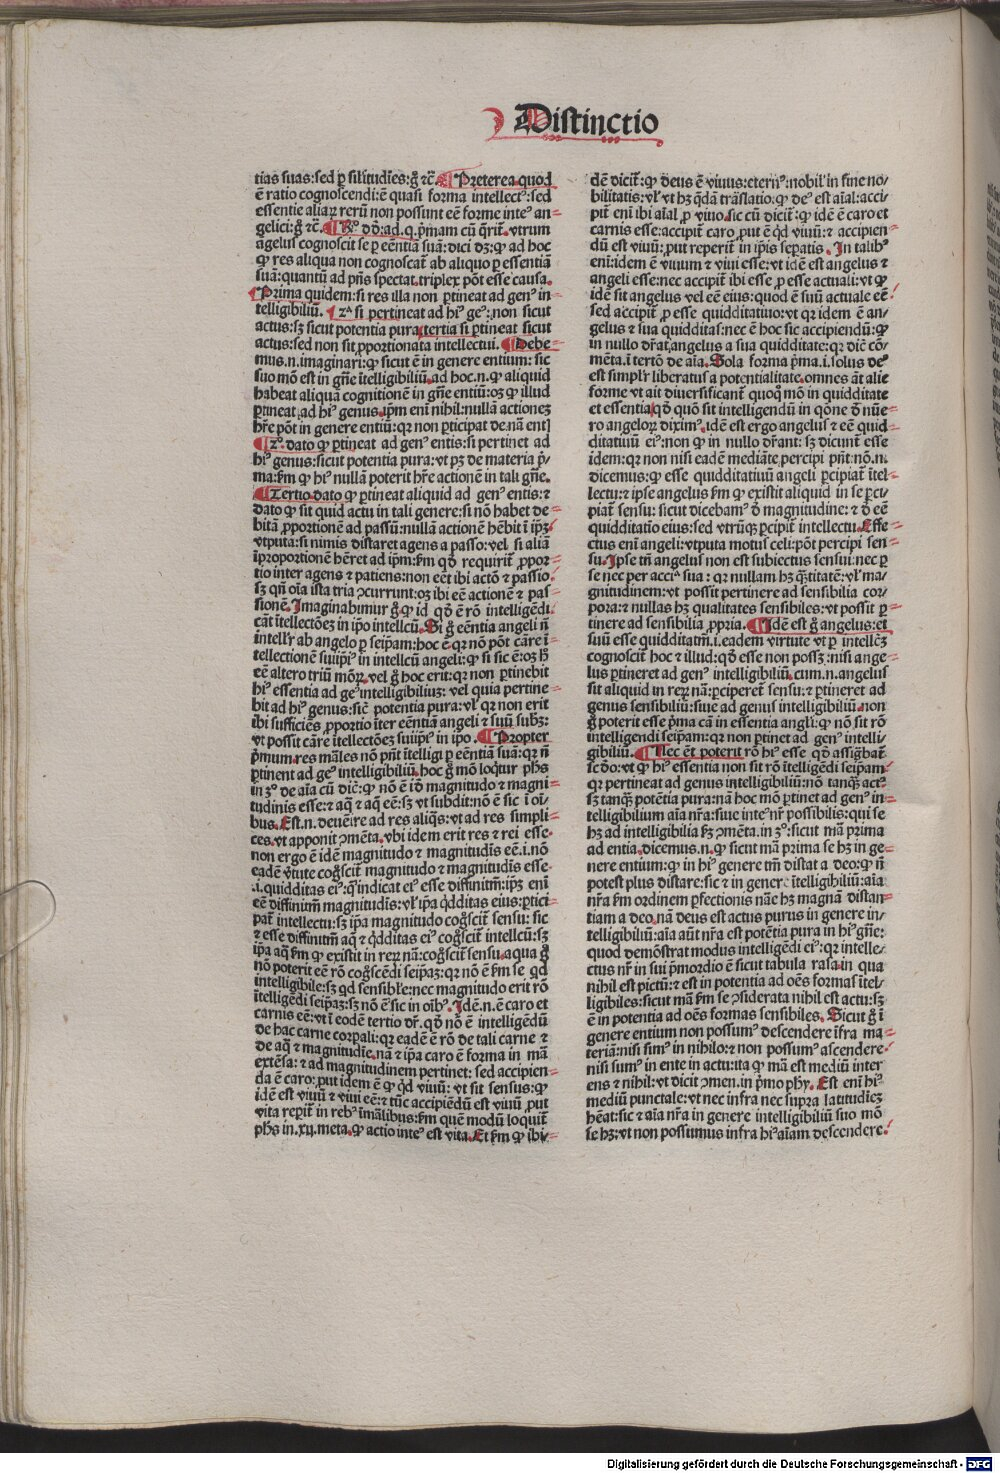 Distinctio
tias suas:sed ꝑ silitudīes:g̊ ⁊c̄. Preterea quod
ē ratio cognoscendi:ē quasi forma intellectꝰ:sed
essentie aliaꝝ rerū non possunt eē forme inteꝰ an-
gelici:g̊ ⁊c̄. Rꝰ dō:ad.q.p̄mam cū q̄rit̄.vtrum
agelus cognoscit se ꝑ eēntiā suā:dici dꝫ:ꝙ ad hoc
ꝙ res aliqua non cognoscat̄ ab aliquo ꝑ essentiā
suā:quantū ad pn̄s spectat.triplex pōt esse causa.
Prima quidem:si res illa non ꝑtineat ad genꝰ in-
telligibiliū. 2ᵃ si pertineat ad hiꝰ geꝰ:non sicut
actus:sꝫ sicut potentia pura.tertia si ꝑtineat sicut
actus:sed non sit ꝓportionata intellectui. Debe
mus.n.imaginari:ꝙ sicut ē in genere entium: sic
suo mō est in gn̄e ītelligibiliū.ad hoc.n.ꝙ aliquid
habeat aliquā cognitionē in gn̄e entiū:oꝫ ꝙ illud
ꝑtineat ad hiꝰ genus.ip̄m eni nihil:nullā actioneꝫ
hr̄e pōt in genere entiū:qꝛ non ꝑticipat de.nā enti
2ᵒ.dato ꝙ ꝑtineat ad genꝰ entis:si pertinet ad
hiꝰ genus:sicut potentia pura:vt pꝫ de materia p̄-
ma:ẜm ꝙ hiꝰ nullā poterit hr̄e actionē in tali gn̄e.
Tertio dato ꝙ ꝑtineat aliquid ad genꝰ entis:⁊
dato ꝙ sit quid actu in tali genere:si nō habet de-
bitā ꝓportionē ad passū:nullā actionē hēbit ī ip̄ꝫ
vtputa:si nimis distaret agens a passo:vel si aliā
īproportionē hēret ad ip̄m:ẜm qd̄ requirit̄ ꝓpor-
tio inter agens ⁊ patiens:non eēt ibi actō ⁊ passio.
sꝫ qn̄ oīa ista tria ꝯcurrunt:oꝫ ibi eē actionē ⁊ pas-
sionē. Imaginabimur g̊.ꝙ id qd̄ ē rō intelligēdi
cāt ītellectōeꝫ in ip̄o intellcū. Si g̊ eēntia angeli n̄
intellr̄ ab angelo ꝑ seip̄am:hoc ē.qꝛ nō pōt cāre ī-
tellectionē suiip̄iꝰ in intellcū angeli:ꝙ si sic ē:oꝫ h̄
eē altero triū mōꝝ.vel g̊ hoc erit:qꝛ non ꝑtinebit
hiꝰ essentia ad geꝰ intelligibiliuꝫ: vel quia pertine-
bit ad hiꝰ genus:sic̄ potentia pura:vl̓ qꝛ non erit
ibi sufficiēs ꝓportio īter eēntiā angeli ⁊ suū subꝫ:
vt possit cāre ītellectōeꝫ suiip̄iꝰ in ip̄o. Propter
p̄mum.res māles nō pn̄t ītelligi ꝑ eēntiā suā:qꝛ n̄
ꝑtinent ad geꝰ intelligibiliū.hoc g̊ mō loq̄tur ph̄s
in 3ᵒ de aīa cū dic̄:ꝙ nō ē id magnitudo ⁊ magni-
tudinis esse:⁊ aq̄ ⁊ aq̄ eē:sꝫ vt subdit:nō ē sic ī oī-
bus. Est.n.deuēire ad res aliq̄s:vt ad res simpli-
ces.vt apponit ꝯmēta.vbi idem erit res ⁊ rei esse-
non ergo ē idē magnitudo ⁊ magnitudīs eē.i.nō
eadē v̄tute cog̊scit̄ magnitudo ⁊ magnitudīs esse-
.i.quidditas eiꝰ:q̄ indicat eiꝰ esse diffinitm̄:ip̄ꝫ eni
eē diffinitm̄ magnitudīs:vl̓ ip̄a q̄dditas eius:ꝑtici-
pat̄ intellectu:sꝫ ip̄a magnitudo cog̊scit̄ sensu: sic
⁊ esse diffinitm̄ aq̄ ⁊ q̄dditas eiꝰ cog̊scit̄ intellcū:sꝫ
ip̄a aq̄ ẜm ꝙ existit in reꝝ nā:cog̊scit̄ sensu.aqua g̊
nō poterit eē rō cog̊scēdi seip̄aꝫ:qꝛ nō ē ẜm se qd
intelligibile:sꝫ qd sensible:nec magnitudo erit rō
ītelligēdi seip̄aꝫ:sꝫ nō ē sic in oībꝰ. Idē.n.ē caro et
carnis eē:vt ī eodē tertio dr̄.qd̄ nō ē intelligēdū
de hac carne corpali:qꝛ eadē ē rō de tali carne ⁊
de aq̄ ⁊ magnitudīe.nā ⁊ ip̄a caro ē forma in mā
extēsa: ⁊ ad magnitudinem pertinet: sed accipien-
da ē caro:ꝓut idem ē ꝙ q̄d viuū: vt sit sensus:ꝙ
idē est viuū ⁊ viui eē:⁊ tūc accipiēdū est viuū ꝓut
vita reperit̄ in rebꝰ īmālibus:ẜm quē modū loquit̄
ph̄s in.xij.meta.ꝙ actio inteꝰ est vita. Et ẜm ꝙ ibi-
dē dicit̄:ꝙ deus ē viuus:eternꝰ:nobilꝰ in fine no-
bilitatis:vl̓ vt hꝫ q̄dā trāslatio:ꝙ deꝰ est aīal:acci-
pit̄ eni ibi aīal ꝓ viuo.sic cū dicit̄:ꝙ idē ē caro et
carnis esse:accipit̄ caro ꝓut ē q̄d viuū:⁊ accipien-
dū est viuū:ꝓut reperit̄ in ip̄is seꝑatis. In talibꝰ
eni:idem ē viuum ⁊ viui esse:vt idē est angelus ⁊
angeli esse:nec accipit̄ ibi esse ꝓ esse actuali:vt ꝙ
idē sit angelus vel eē eius:quod ē suū actuale eē
sed accipit̄ ꝓ esse quidditatiuo:vt qꝛ idem ē an-
gelus ⁊ sua quidditas:nec ē hoc sic accipiendū:ꝙ
in nullo dr̄at.angelus a sua quidditate:qꝛ dic̄ cō-
mēta.ī tertō de aīa. Sola forma p̄ma.i.solus deꝰ
est simplr̄ liberatus a potentialitate.omnes āt alie
forme vt ait diuersificant̄ quoq̊ mō in quidditate
et essentia qd̄ quō sit intelligendū in qōne d̄ nūe-
ro angeloꝝ dixim⁹.idē est ergo angelus ⁊ eē quid-
ditatiuū eiꝰ:non ꝙ in nullo dr̄ant: sꝫ dicunt̄ esse
idem:qꝛ non nisi eadē mediāte ꝑcipi pn̄t:nō.n.
dicemus:ꝙ esse quidditatiuū angeli ꝑcipiat̄ ītel-
lectu:⁊ ipse angelus ẜm ꝙ existit aliquid in se ꝑci-
piat̄ sensu: sicut dicebam⁹ d̄ magnitudine: ⁊ d̄ eē
quidditatio eius:sed vtrūqꝫ ꝑcipit̄ intellectu. Effe-
ctus eni angeli:vtputa motus celi:pōt percipi sen-
su. Ipse tn̄ angelus non est subiectus sensui:nec ꝑ
se nec per acciⁿˢ sua: qꝛ nullam hꝫ q̄ntitatē:vl̓ ma-
gnitudinem:vt possit pertinere ad sensibilia cor-
pora:⁊ nullas hꝫ qualitates sensibiles:vt possit ꝑ-
tinere ad sensibilia ꝓpria. Idē est g̊ angelus:et
suū esse quidditatm̄.i.eadem virtute vt ꝑ intellc̄ꝫ
cognoscit̄ hoc ⁊ illud:qd̄ esse non posset:nisi ange-
lus ꝑtineret ad genꝰ intelligibiliū.cum.n.angelus
sit aliquid in reꝝ nā:ꝑciperet̄ sensu:⁊ ꝑtineret ad
genus sensibiliū:siue ad genus intelligibiliū.non
g̊ poterit esse p̄ma cā in essentia angli:ꝙ nō sit rō
intelligendi seip̄am:qꝛ non ꝑtinet ad genꝰ intelli-
gibiliū. Nec ēt poterit rō hiꝰ esse qd̄ assig̊bat̄
sc̄do:vt ꝙ hiꝰ essentia non sit rō ītelligēdi seip̄am:
qꝛ pertineat ad genus intelligibiliū:nō tanqꝫ actꝰ
sꝫ tanqꝫ potētia pura:nā hoc mō ꝑtinet ad genꝰ in-
telligibilium aīa nr̄a:siue inteꝰ nr̄ possibilis:qui se
hꝫ ad intelligibilia ẜm ꝯmēta.in 3ᵒ:sicut mā prima
ad entia.dicemus.n.ꝙ sicut mā prima se hꝫ in ge-
nere entium:ꝙ in hiꝰ genere tm̄ distat a deo:ꝙ n̄
potest plus distare:sic ⁊ in genere ītelligibiliū:aīa
nr̄a ẜm ordinem ꝑfectionis nāe hꝫ magnā distan-
tiam a deo.nā deus est actus purus in genere in-
telligibiliū:aīa aūt nr̄a est potētia pura in hiꝰ gn̄e:
quod demōstrat modus intelligēdi eiꝰ:qꝛ intelle-
ctus nr̄ in sui p̄mordio ē sicut tabula rasa.in qua
nihil est pictū:⁊ est in potentia ad oēs formas ītel-
ligibiles:sicut mā ẜm se ꝯsiderata nihil est actu:sꝫ
ē in potentia ad oēs formas sensibiles. Sicut g̊ ī
genere entium non possum⁹ descendere īfra ma-
teriā:nisi sim⁹ in nihilo:⁊ non possum⁹ ascendere-
nisi sum⁹ in ente in actu:ita ꝙ mā est mediū inter
ens ⁊ nihil:vt dicit ꝯmen.in p̄mo phy. Est eni hiꝰ
mediū punctale:vt nec infra nec supra latitudieꝫ
hēat:sic ⁊ aīa nr̄a in genere intelligibiliū suo mō
se hꝫ:vt non possumus infra hiꝰ aīam descendere.
Digitalisierung gefördert durch die Deutsche Forschungsgemeinschaft - DFG